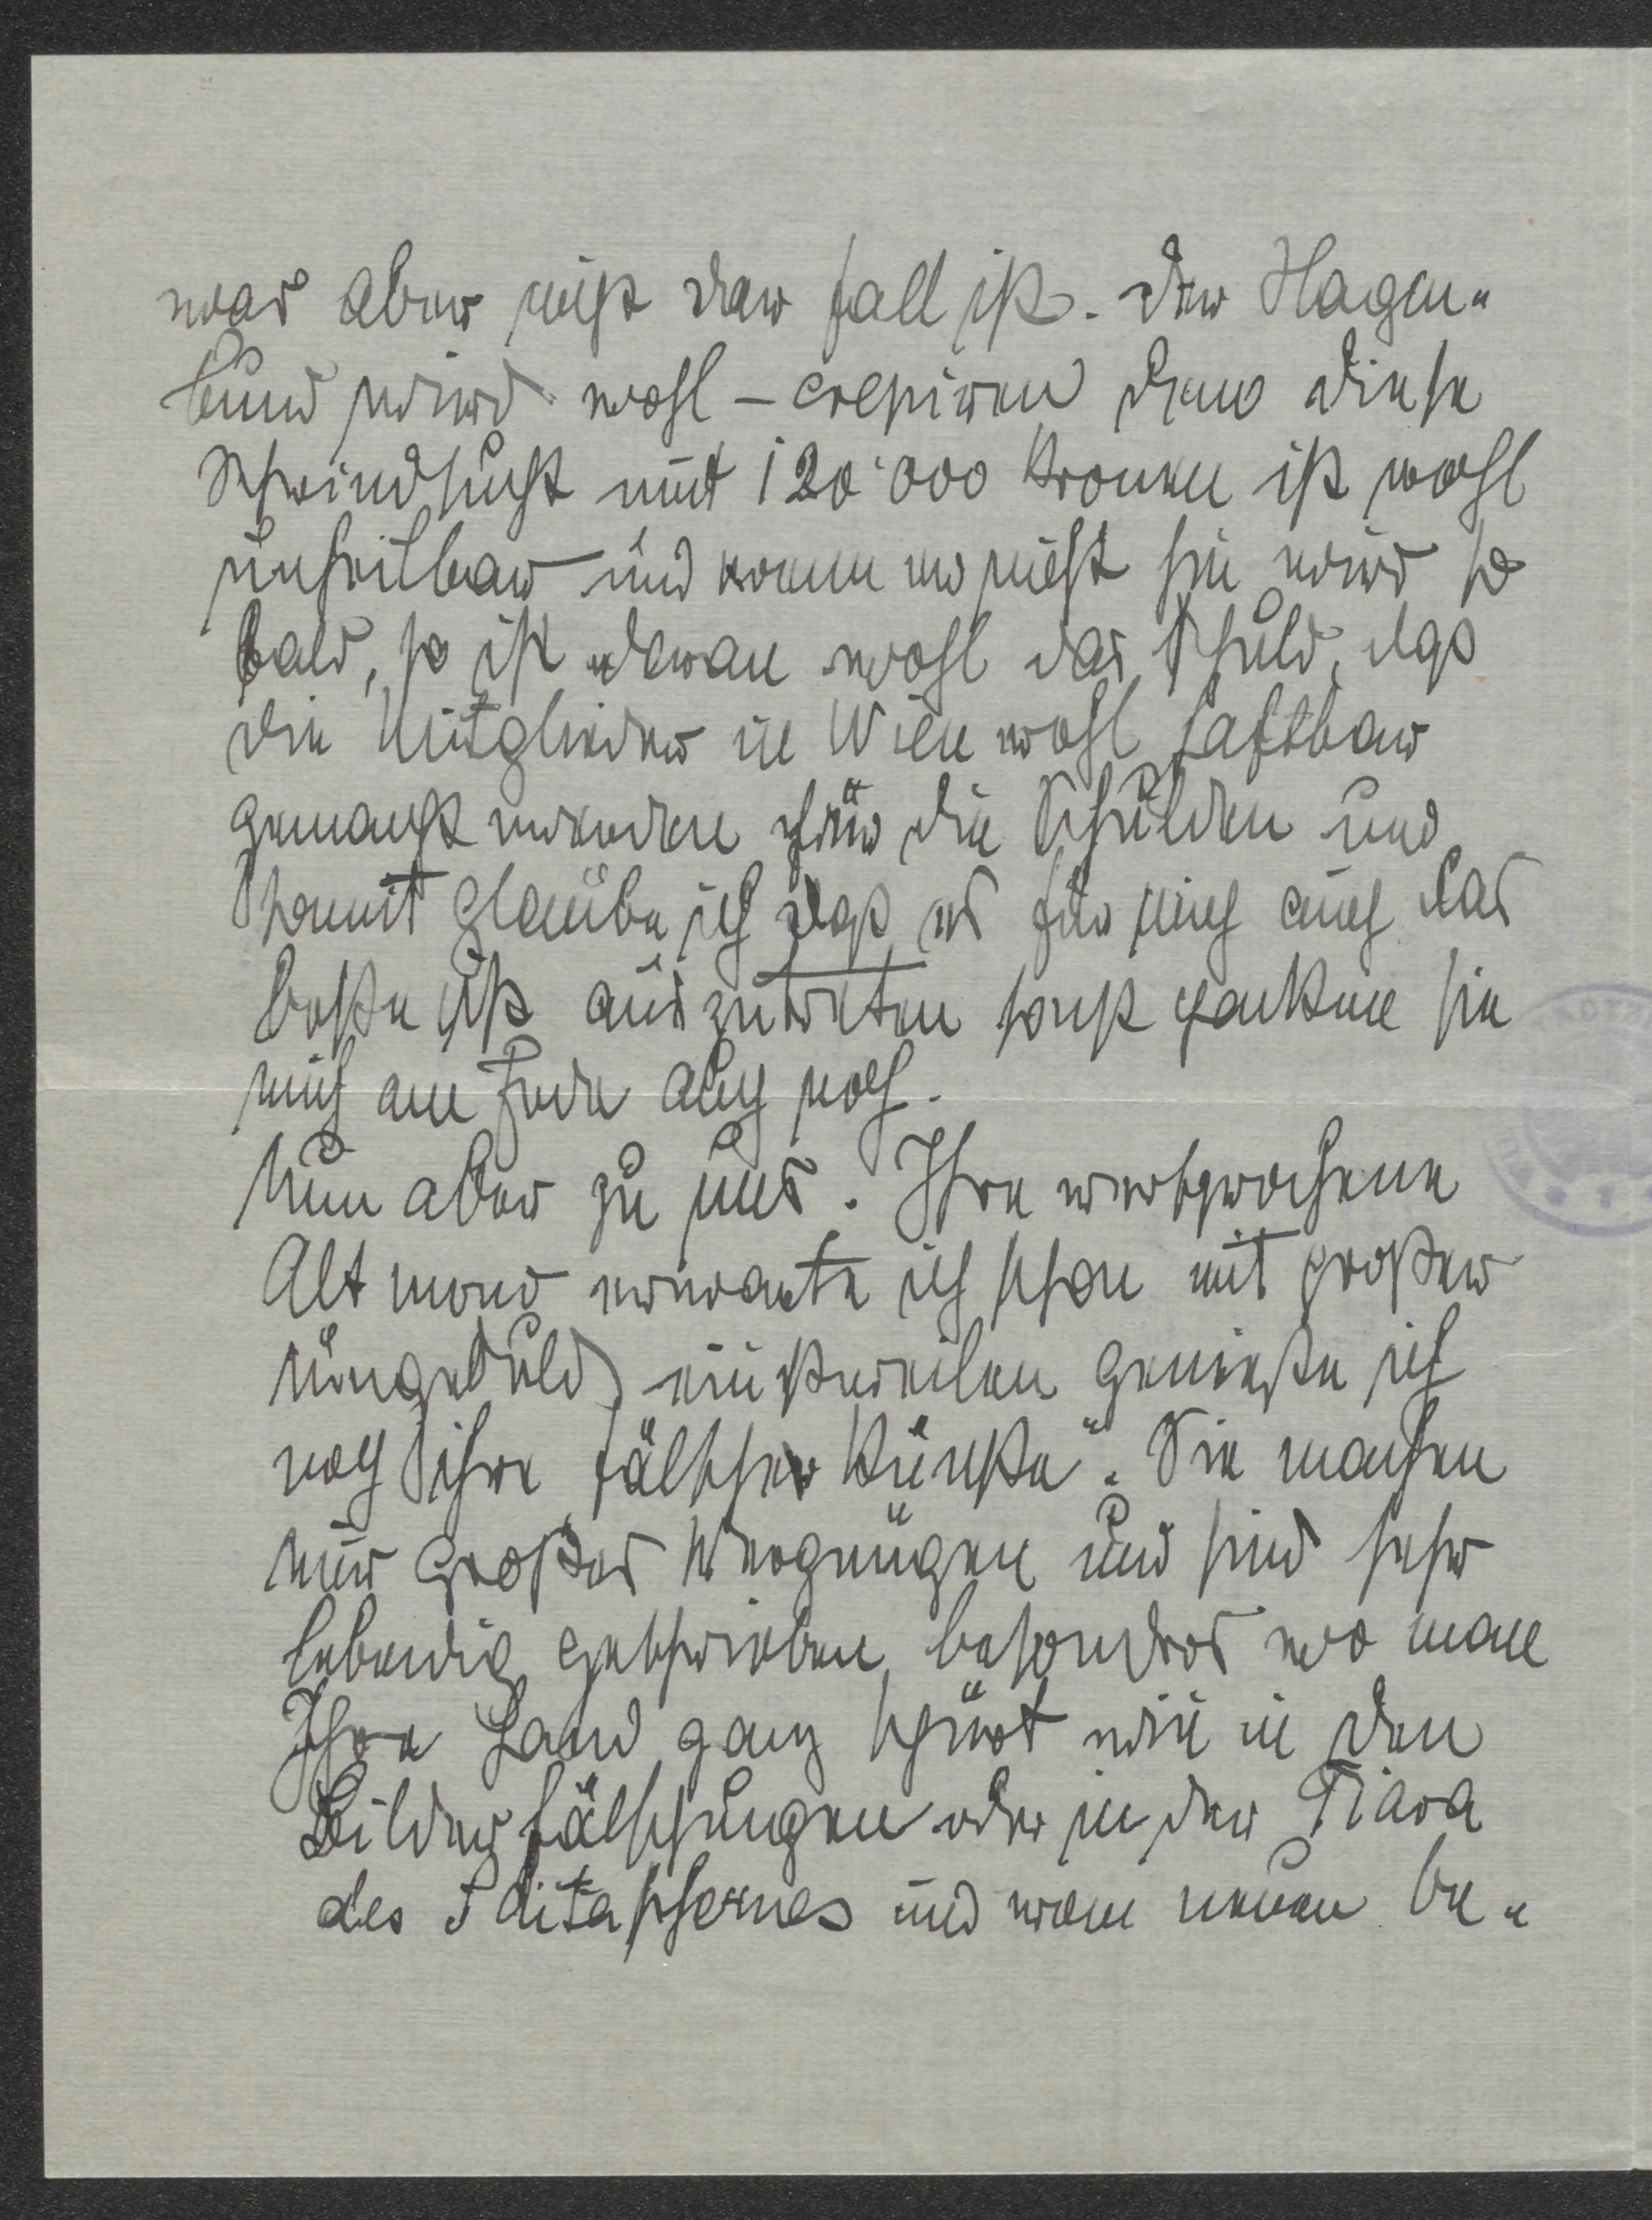 was aber nicht der fall ist. Der Hagen-
bund wird wohl – crepiren denn diese
Schwindsucht mit 120'000 Kronen ist wohl
unheilbar und wenn er nicht hin wird so
bald, so ist daran wohl das Schuld, daß
die Mitglieder in Wien wohl haftbar
gemacht werden für die Schulden und
somit glaube ich daß es für mich auch das
beste ist auszutreten sonst packen sie
mich am Ende auch noch.
Nun aber zu uns. Ihre versprochene
Alt erwarte ich schon mit großer
Ungeduld, einstweilen genieße ich
noch ihre Fälscher Künste". Sie machen
mir großes Vergnügen und sind sehr
lebendig geschrieben, besonders wo man
Ihre Hand ganz spürt wie in den
Bilderfälschungen oder in der Tiara
des Saitaphernes und wenn be-